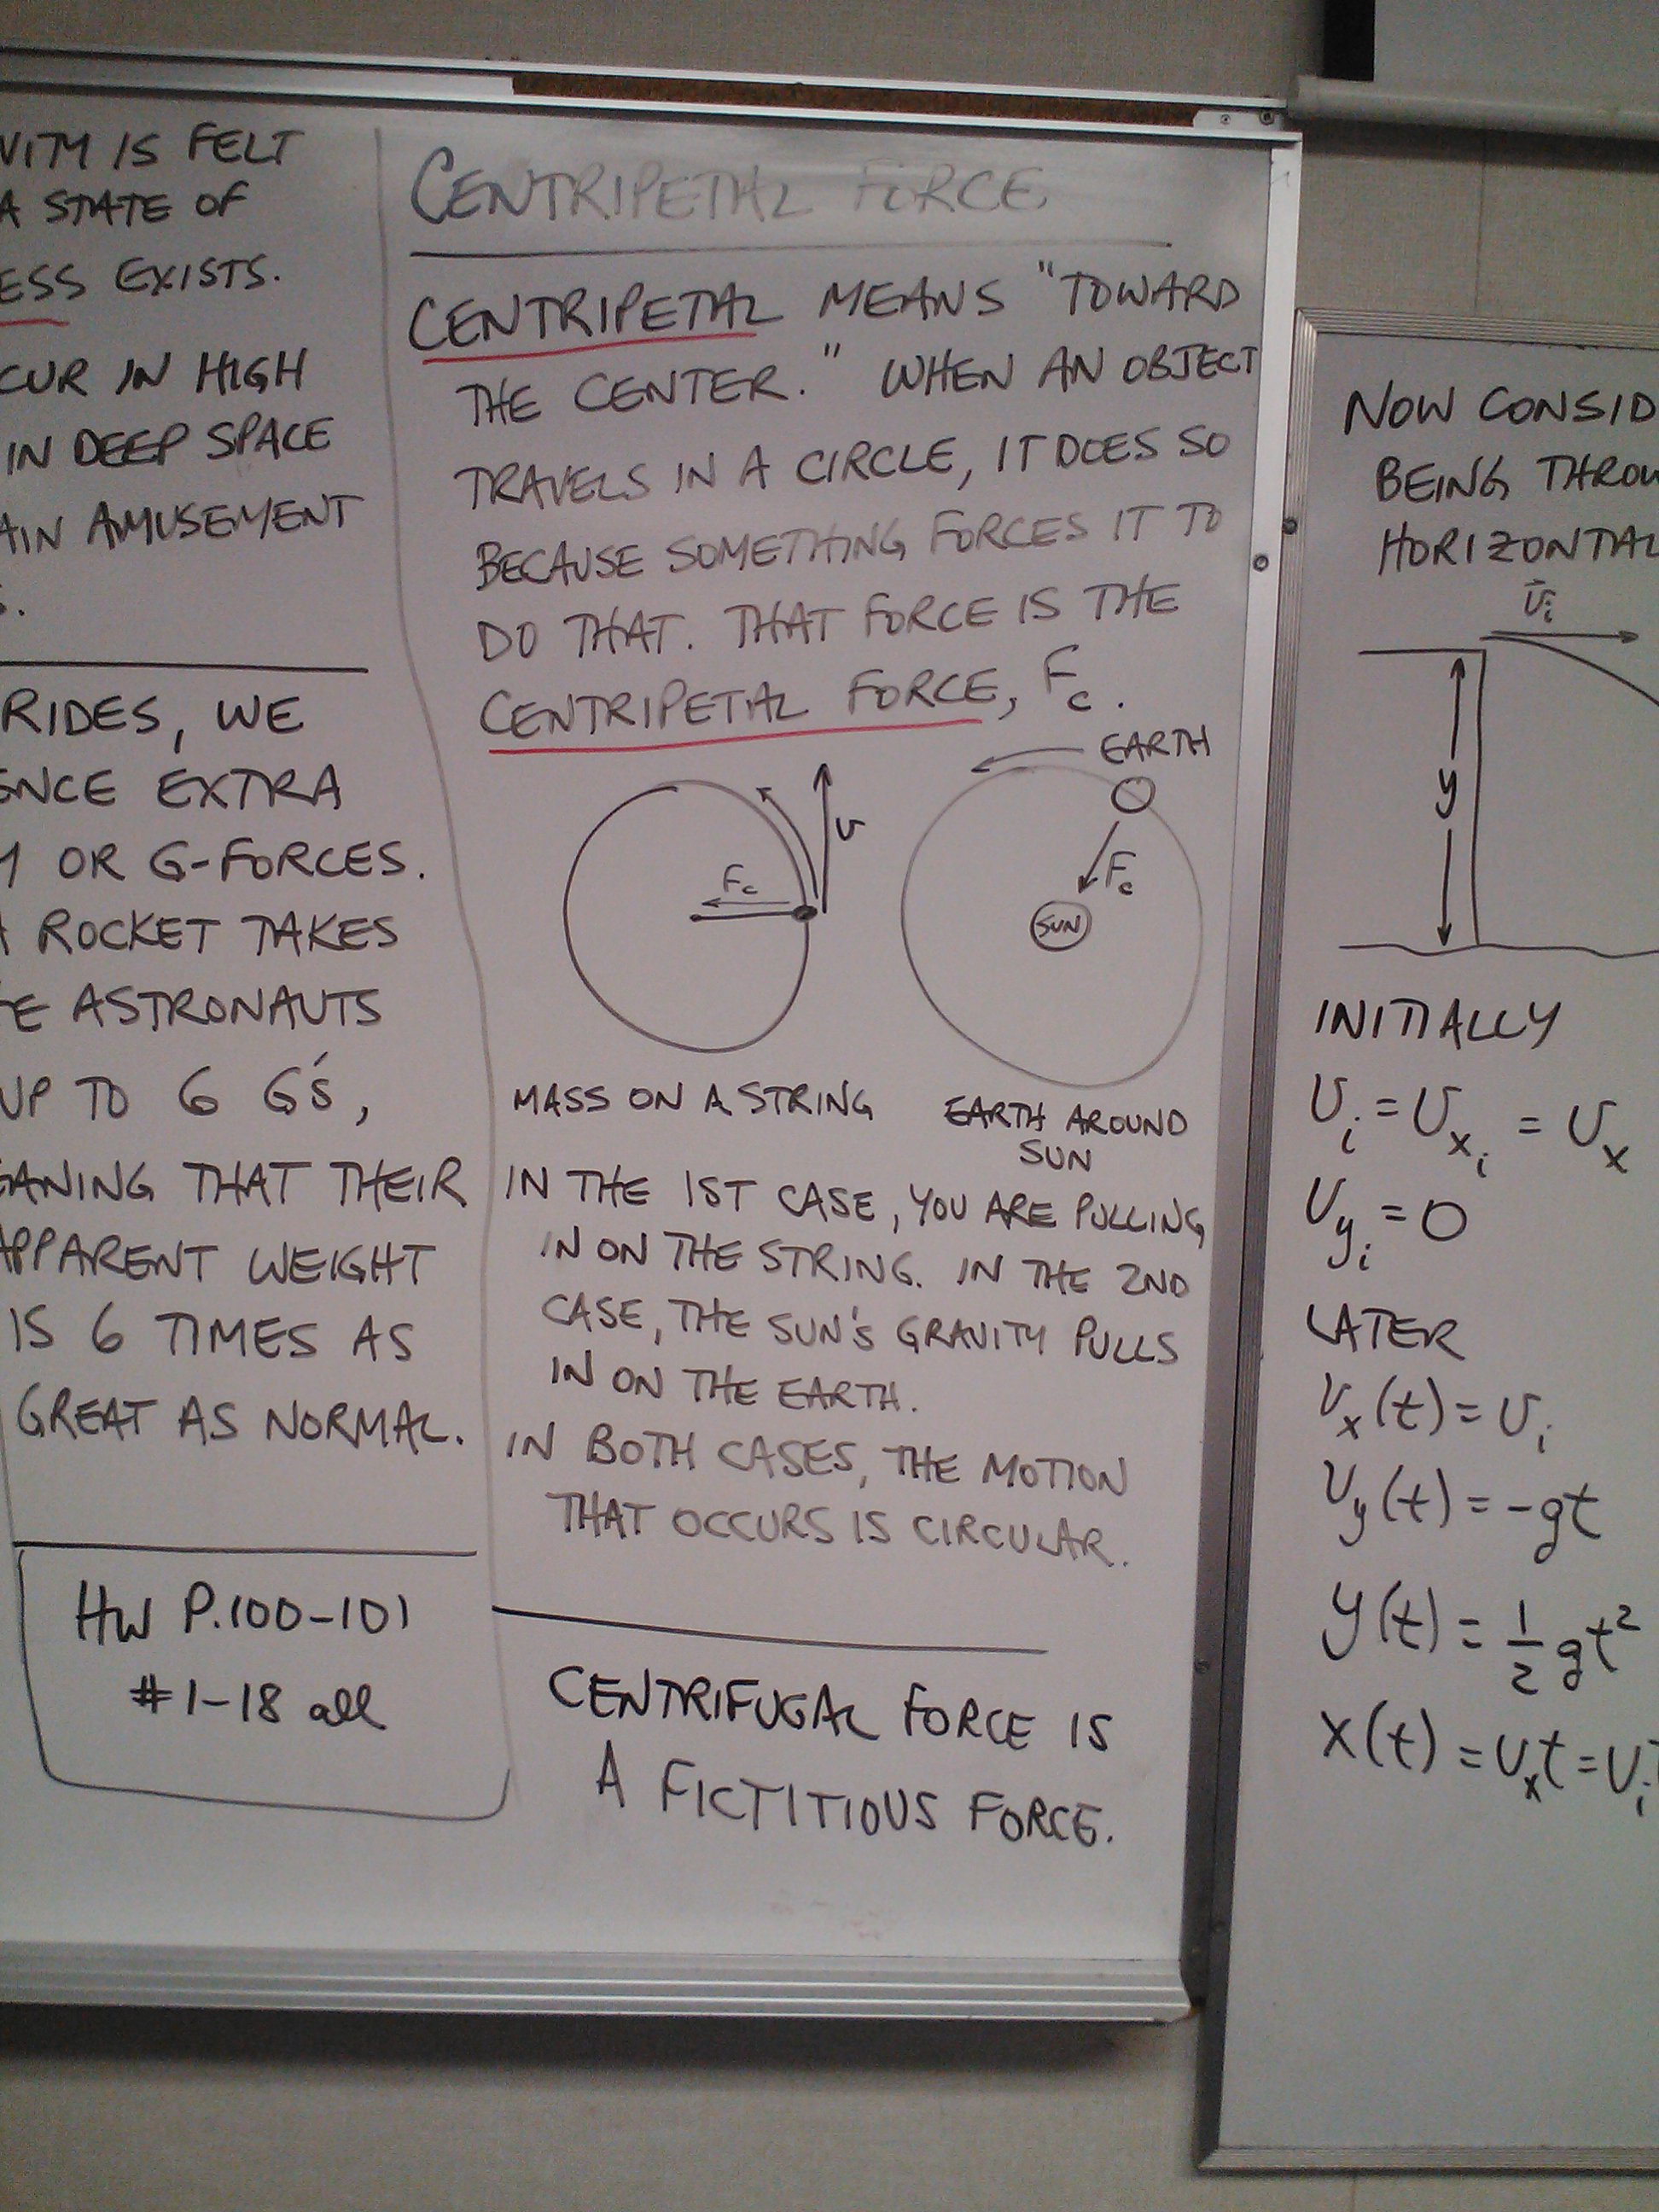 VITY IS FELT
A STATE OF
ESS EXISTS.
CUR IN HIGH
IN DEEP SPACE
AIN AMUSEMENT
S.
RIDES, WE
ENCE EXTRA
OR G-FORCES.
A ROCKET TAKES
ASTRONAUTS
UP TO 6 G'S,
EANING THAT THEIR
APPARENT WEIGHT
IS 6 TIMES AS
GREAT AS NORMAL.
HW P.100-101
#1-18 all
CENTRIPETAL FORCE
CENTRIPETAL MEANS "TOWARD
THE CENTER." WHEN AN OBJECT
TRAVELS IN A CIRCLE, IT DOES SO
BECAUSE SOMETHING FORCES IT TO
DO THAT. THAT FORCE IS THE
CENTRIPETAL FORCE, Fc.
v
Fc
EARTH
Fc
SUN
MASS ON A STRING
EARTH AROUND
SUN
IN THE 1ST CASE, YOU ARE PULLING
IN ON THE STRING. IN THE 2ND
CASE, THE SUN'S GRAVITY PULLS
IN ON THE EARTH.
IN BOTH CASES, THE MOTION
THAT OCCURS IS CIRCULAR.
CENTRIFUGAL FORCE IS
A FICTITIOUS FORCE.
NOW CONSID
BEING THROW
HORIZONTAL
v̄i
y
INITIALLY
vi = vxi = vx
vyi = 0
LATER
vx(t) = vi
vy(t) = -gt
y(t) = 1/2 gt²
x(t) = vxt = vi